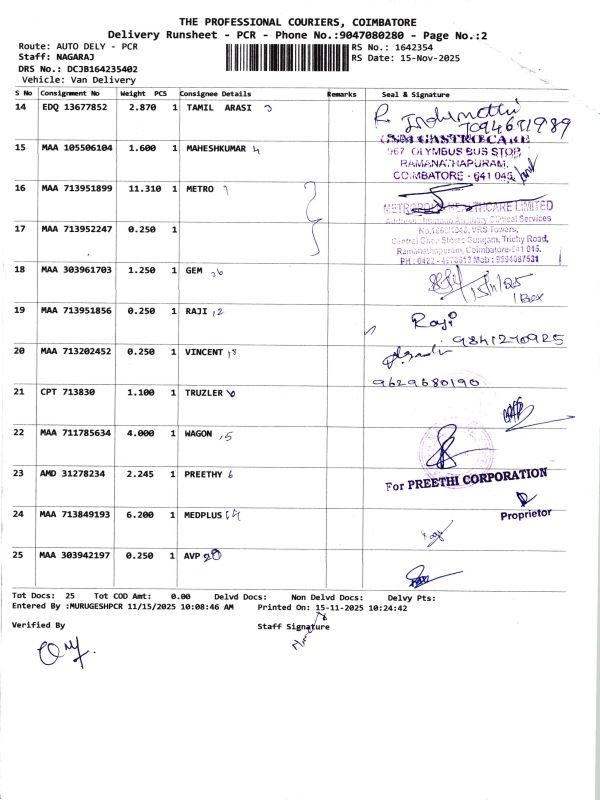 THE PROFESSIONAL COURIERS, COIMBATORE
Delivery Runsheet - PCR - Phone No.:9047080280 - Page No.:2
Route: AUTO DELY - PCR RS No.: 1642354
Staff: NAGARAJ RS Date: 15-Nov-2025
DRS No.: DCJB164235402
Vehicle: Van Delivery
S No Consignment No Weight PCS Consignee Details Remarks Seal & Signature
14 EDQ 13677852 2.870 1 TAMIL ARASI 3
R. Indumathi
7094671989
15 MAA 105506104 1.600 1 MAHESHKUMAR 4
GSM GASTRO CARE
967 OLYMBUS BUS STOP,
RAMANATHAPURAM,
COIMBATORE - 641 045.
16 MAA 713951899 11.310 1 METRO 1
METROPOLIS HEALTHCARE LIMITED
17 MAA 713952247 0.250 1
VRS Towers,
Sungam, Trichy Road,
Ramanathapuram, Coimbatore-641 045.
18 MAA 303961703 1.250 1 GEM 26
15/11/025
1 Box
19 MAA 713951856 0.250 1 RAJI 12
Raji
9841270925
20 MAA 713202452 0.250 1 VINCENT 18
9629680190
21 CPT 713830 1.100 1 TRUZLER
22 MAA 711785634 4.000 1 WAGON 15
23 AMD 31278234 2.245 1 PREETHY 6
For PREETHI CORPORATION
Proprietor
24 MAA 713849193 6.200 1 MEDPLUS 14
25 MAA 303942197 0.250 1 AVP 20
Tot Docs: 25 Tot COD Amt: 0.00 Delvd Docs: Non Delvd Docs: Delvy Pts:
Entered By :MURUGESHPCR 11/15/2025 10:08:46 AM Printed On: 15-11-2025 10:24:42
Verified By Staff Signature